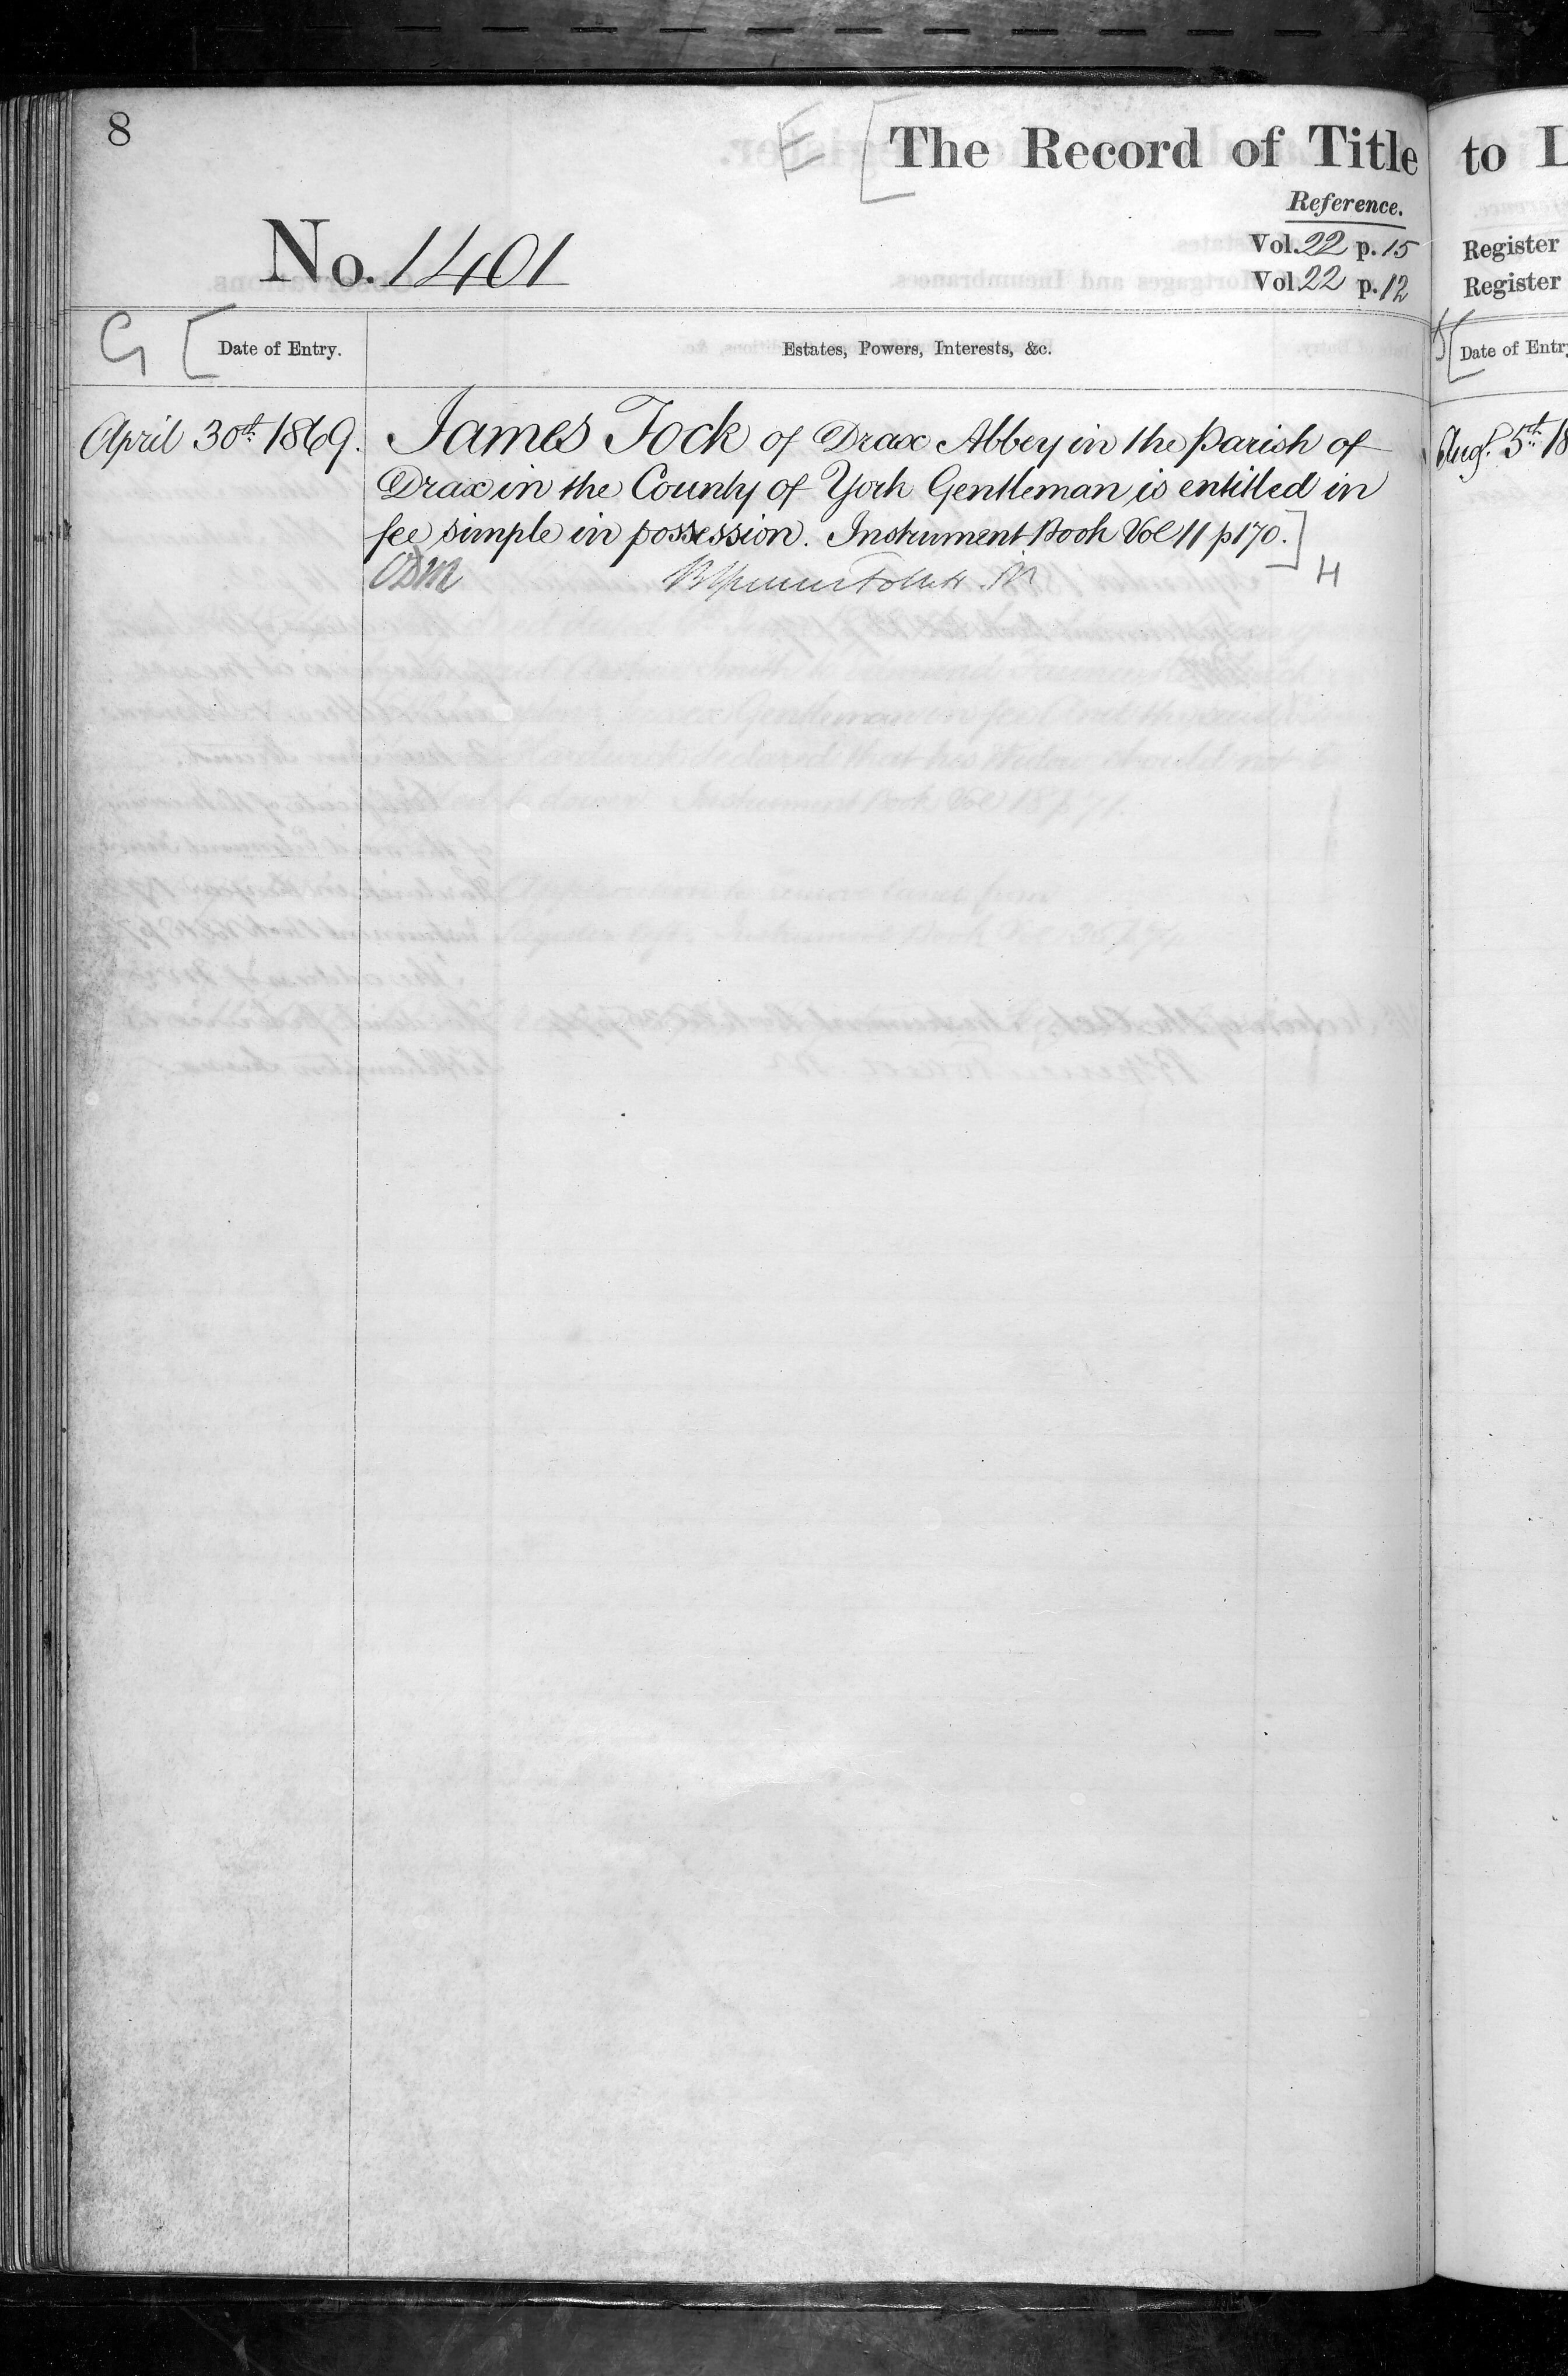 8
E [ The Record of Title to L
Reference.
No. 1401
Vol. 22 p. 15
Register
Vol. 22 p. 12
Register
G [ Date of Entry.
Estates, Powers, Interests, &c.
[ Date of Entry
April 30th 1869.
James Tock of Drax Abbey in the Parish of
Drax in the County of York Gentleman is entitled in
fee simple in possession. Instrument Book Vol 11 p 170. ]
H
Augt. 5th 18